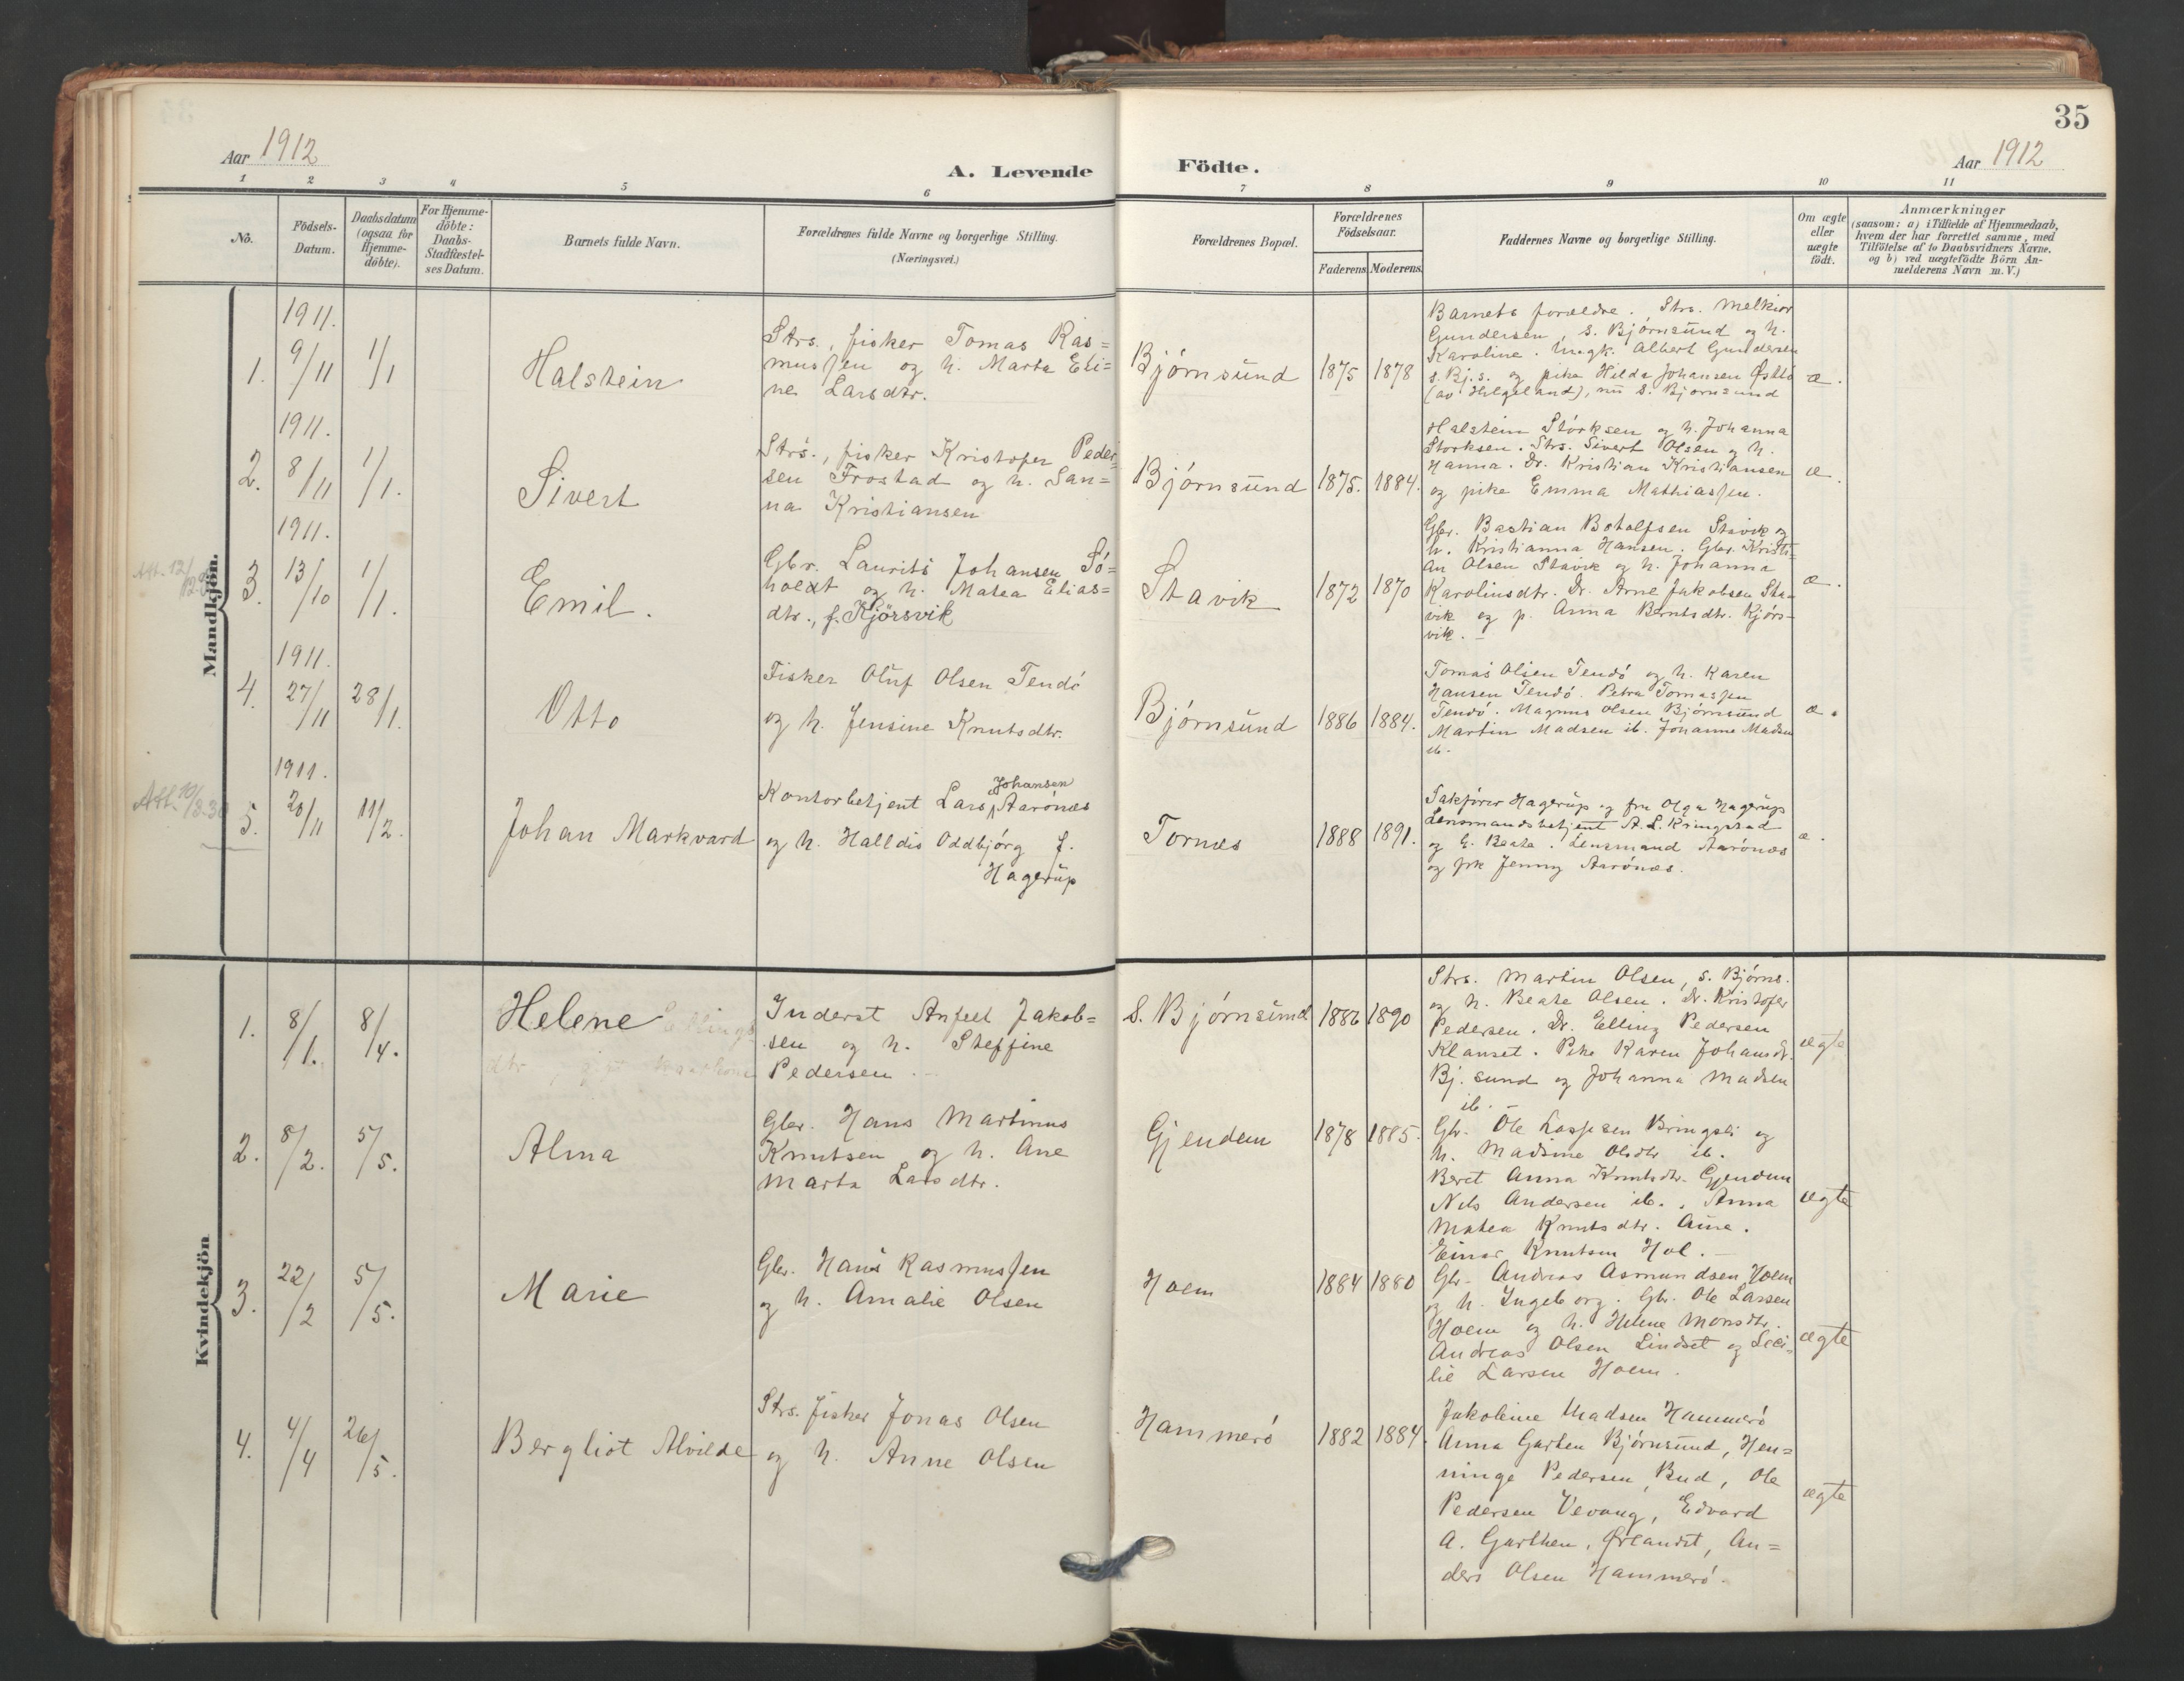 35
Aar 1912
A. Levende Födte.
Aar 1912
1 2 3 4 5 6 7 8 9 10 11
No.
Födsels-
Datum.
Daabsdatum
(ogsaa for
Hjemme-
döbte).
For Hjemme-
döbte:
Daabs-
Stadfæstel-
ses Datum.
Barnets fulde Navn.
Forældrenes fulde Navne og borgerlige Stilling.
(Næringsvei.)
Forældrenes Bopæl.
Forældrenes
Födselsaar.
Faderens. Moderens.
Faddernes Navne og borgerlige Stilling.
Om ægte
eller
uægte
födt.
Anmærkninger
(saasom: a) i Tilfælde af Hjemmedaab,
hvem der har forrettet samme, med
Tilföielse af to Daabsvidners Navne.
og b) ved uægtefödte Börn An-
melderens Navn m. V.)
Mandkjön.
1911.
1. 9/11 1/1
Halstein
Strs., fisker Tomas Ras=
mussen og h. Marta Eli=
ne Larsdtr.
Bjórnsund
1875 1878
Barnets forældre. Strs. Melkior
Gundersen, S. Bjórnsund og h.
Karoline. Ungk. Albert Gundersen
S. Bj.s. og pike Hilda Johansen
(av Helgeland), nu S. Bjórnsund
æ.
1911.
2. 8/11 1/1.
Sivert
Strs., fisker Kristofer Peder=
sen Frostad og h. San=
na Kristiansen
Bjórnsund
1875. 1884.
Halstein Storksen og h. Johanna
Storksen. Strs. Sivert Olsen og h.
Hanna. Dr. Kristian Kristiansen
og pike Emma Mathiassen.
æ.
1911.
Att. 12/
3. 13/10 1/1.
Emil.
Gbr. Laurits Johansen Só=
holdt og h. Matea Elias=
dtr., f. Kjörsvik
Stavik
1872 1870
Gbr. Bastian Botolfsen Stavik og
h. Kristianna Hansen. Gbr. Kristi=
an Olsen Stavik og h. Johanna
Karolinsdtr. Dr. Arne Jakobsen Sta=
vik og p. Anna Berntsdtr. Kjörs=
vik. –
æ.
1911.
4. 27/11 28/1.
Otto
Fisker Oluf Olsen Tendó
og h. Jensine Knutsdtr.
Bjórnsund
1886 1884.
Tomas Olsen Tendó og h. Karen
Hansen Tendó. Petra Tomassen
Tendó. Magnus Olsen Bjórnsund
Martin Madsen ib. Johanne Madsen
ib.
æ.
1911.
Att. 10/3-30
5. 20/11 11/2.
Johan Markvard
Johansen
Kontorbetjent Lars Aarónæs
og h. Halldis Oddbjórg f.
Hagerup
Tornæs
1888 1891.
Sakförer Hagerup og fru Olga Hagerup
Lensmandsbetjent A. L. Kringstad
og h. Beate. Lensmand Aarónæs
og frk Jenny Aarónæs.
æ.
Kvindekjön
1. 8/1. 8/4.
Helene
Inderst Anfelt Jakob=
sen og h. Steffine
Pedersen.
S. Bjórnsund
1886 1890
Strs. Martin Olsen, S. Bjórns.
og h. Beate Olsen. Dr. Kristofer
Pedersen. Dr. Elling Pedersen
Klauset. Pike Karen Johansdtr.
Bj.sund og Johanna Madsen
ib. –
ægte
2. 8/2. 5/5.
Alma
Gbr. Hans Martinus
Knutsen og h. Ane
Marta Larsdtr.
Gjendem
1878 1885.
Gbr. Ole Lassesen Bringsli og
h. Madsine Olsdtr ib.
Beret Anna Knutsdtr. Gjendem
Nils Andersen ib., Anna
Matea Knutsdtr.
Einar Knutsen Hol. –
ægte
3. 22/2 5/5.
Marie
Gbr. Hans Rasmussen
og h. Amalie Olsen
Hoem
1884 1880
Gbr. Andreas Asmundsen Hoem
og h. Ingeborg. Gbr. Ole Larsen
Hoem og h. Helene Monsdtr.
Andreas Olsen Lindset og Seci=
lie Larsen Hoem.
ægte
4. 4/4 26/5.
Bergliot Alvilde
Strs. fisker Jonas Olsen
og h. Anne Olsen
Hammeró
1882 1884.
Jakobine Madsen Hammeró
Anna Garten Bjórnsund, Hen=
ninge Pedersen, Bud, Ole
Pedersen Vevang, Edvard
A. Garthen, Ørlandet, An=
ders Olsen Hammeró.
ægte